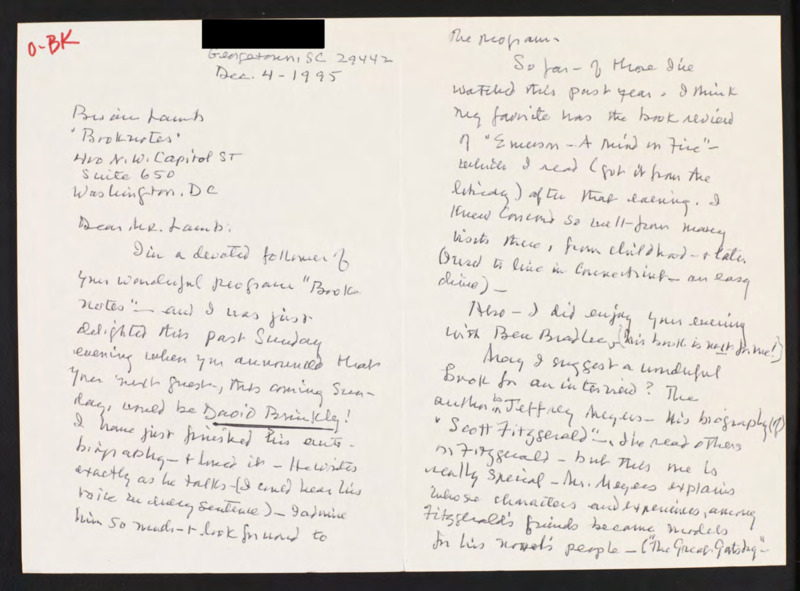 O-BK
Georgetown, SC 29442
Dec. 4 - 1995
Brian Lamb
"Booknotes"
400 N.W. Capitol ST
Suite 650
Washington, DC
Dear Mr. Lamb:
I'm a devoted follower of
your wonderful program "Book-
notes" — and I was just
delighted this past Sunday
evening when you announced that
your next guest, this coming Sun-
day, would be David Brinkley!
I have just finished his auto-
biography — + loved it — He writes
exactly as he talks — (I could hear his
voice in every sentence) — I admire
him so much — + look forward to
the program.
So far — of those I've
watched this past year, I think
my favorite was the book review
of "Emerson — A Mind on Fire" —
which I read (got it from the
library) after that evening. I
knew Concord so well — from many
visits there, from childhood — + later
(used to live in Connecticut — an easy
drive) —
Also — I did enjoy your evening
with Ben Bradlee, (his book is next for me!)
May I suggest a wonderful
book for an interview? The
author is Jeffrey Meyers — His biography (of)
"Scott Fitzgerald" — I've read others
on Fitzgerald — but this one is
really special — Mr. Meyers explains
whose characters and experiences, among
Fitzgerald's friends became models
for his novel's people — ("The Great Gatsby" —